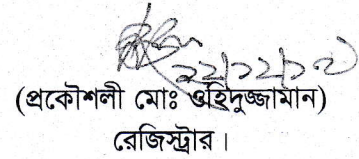 (প্রকৌশলী মোঃ ওহিদুজ্জামান)
রেজিস্ট্রার।